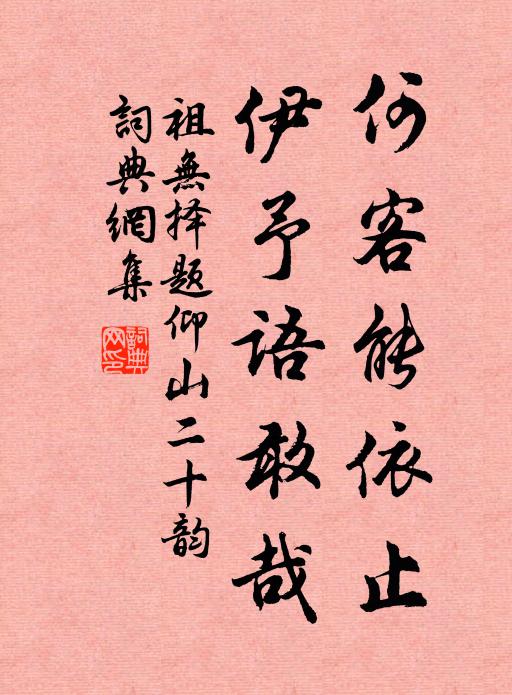 何客能依止
伊予語敢哉
祖無择题仰山二十韵
詞典網集
詞典网印